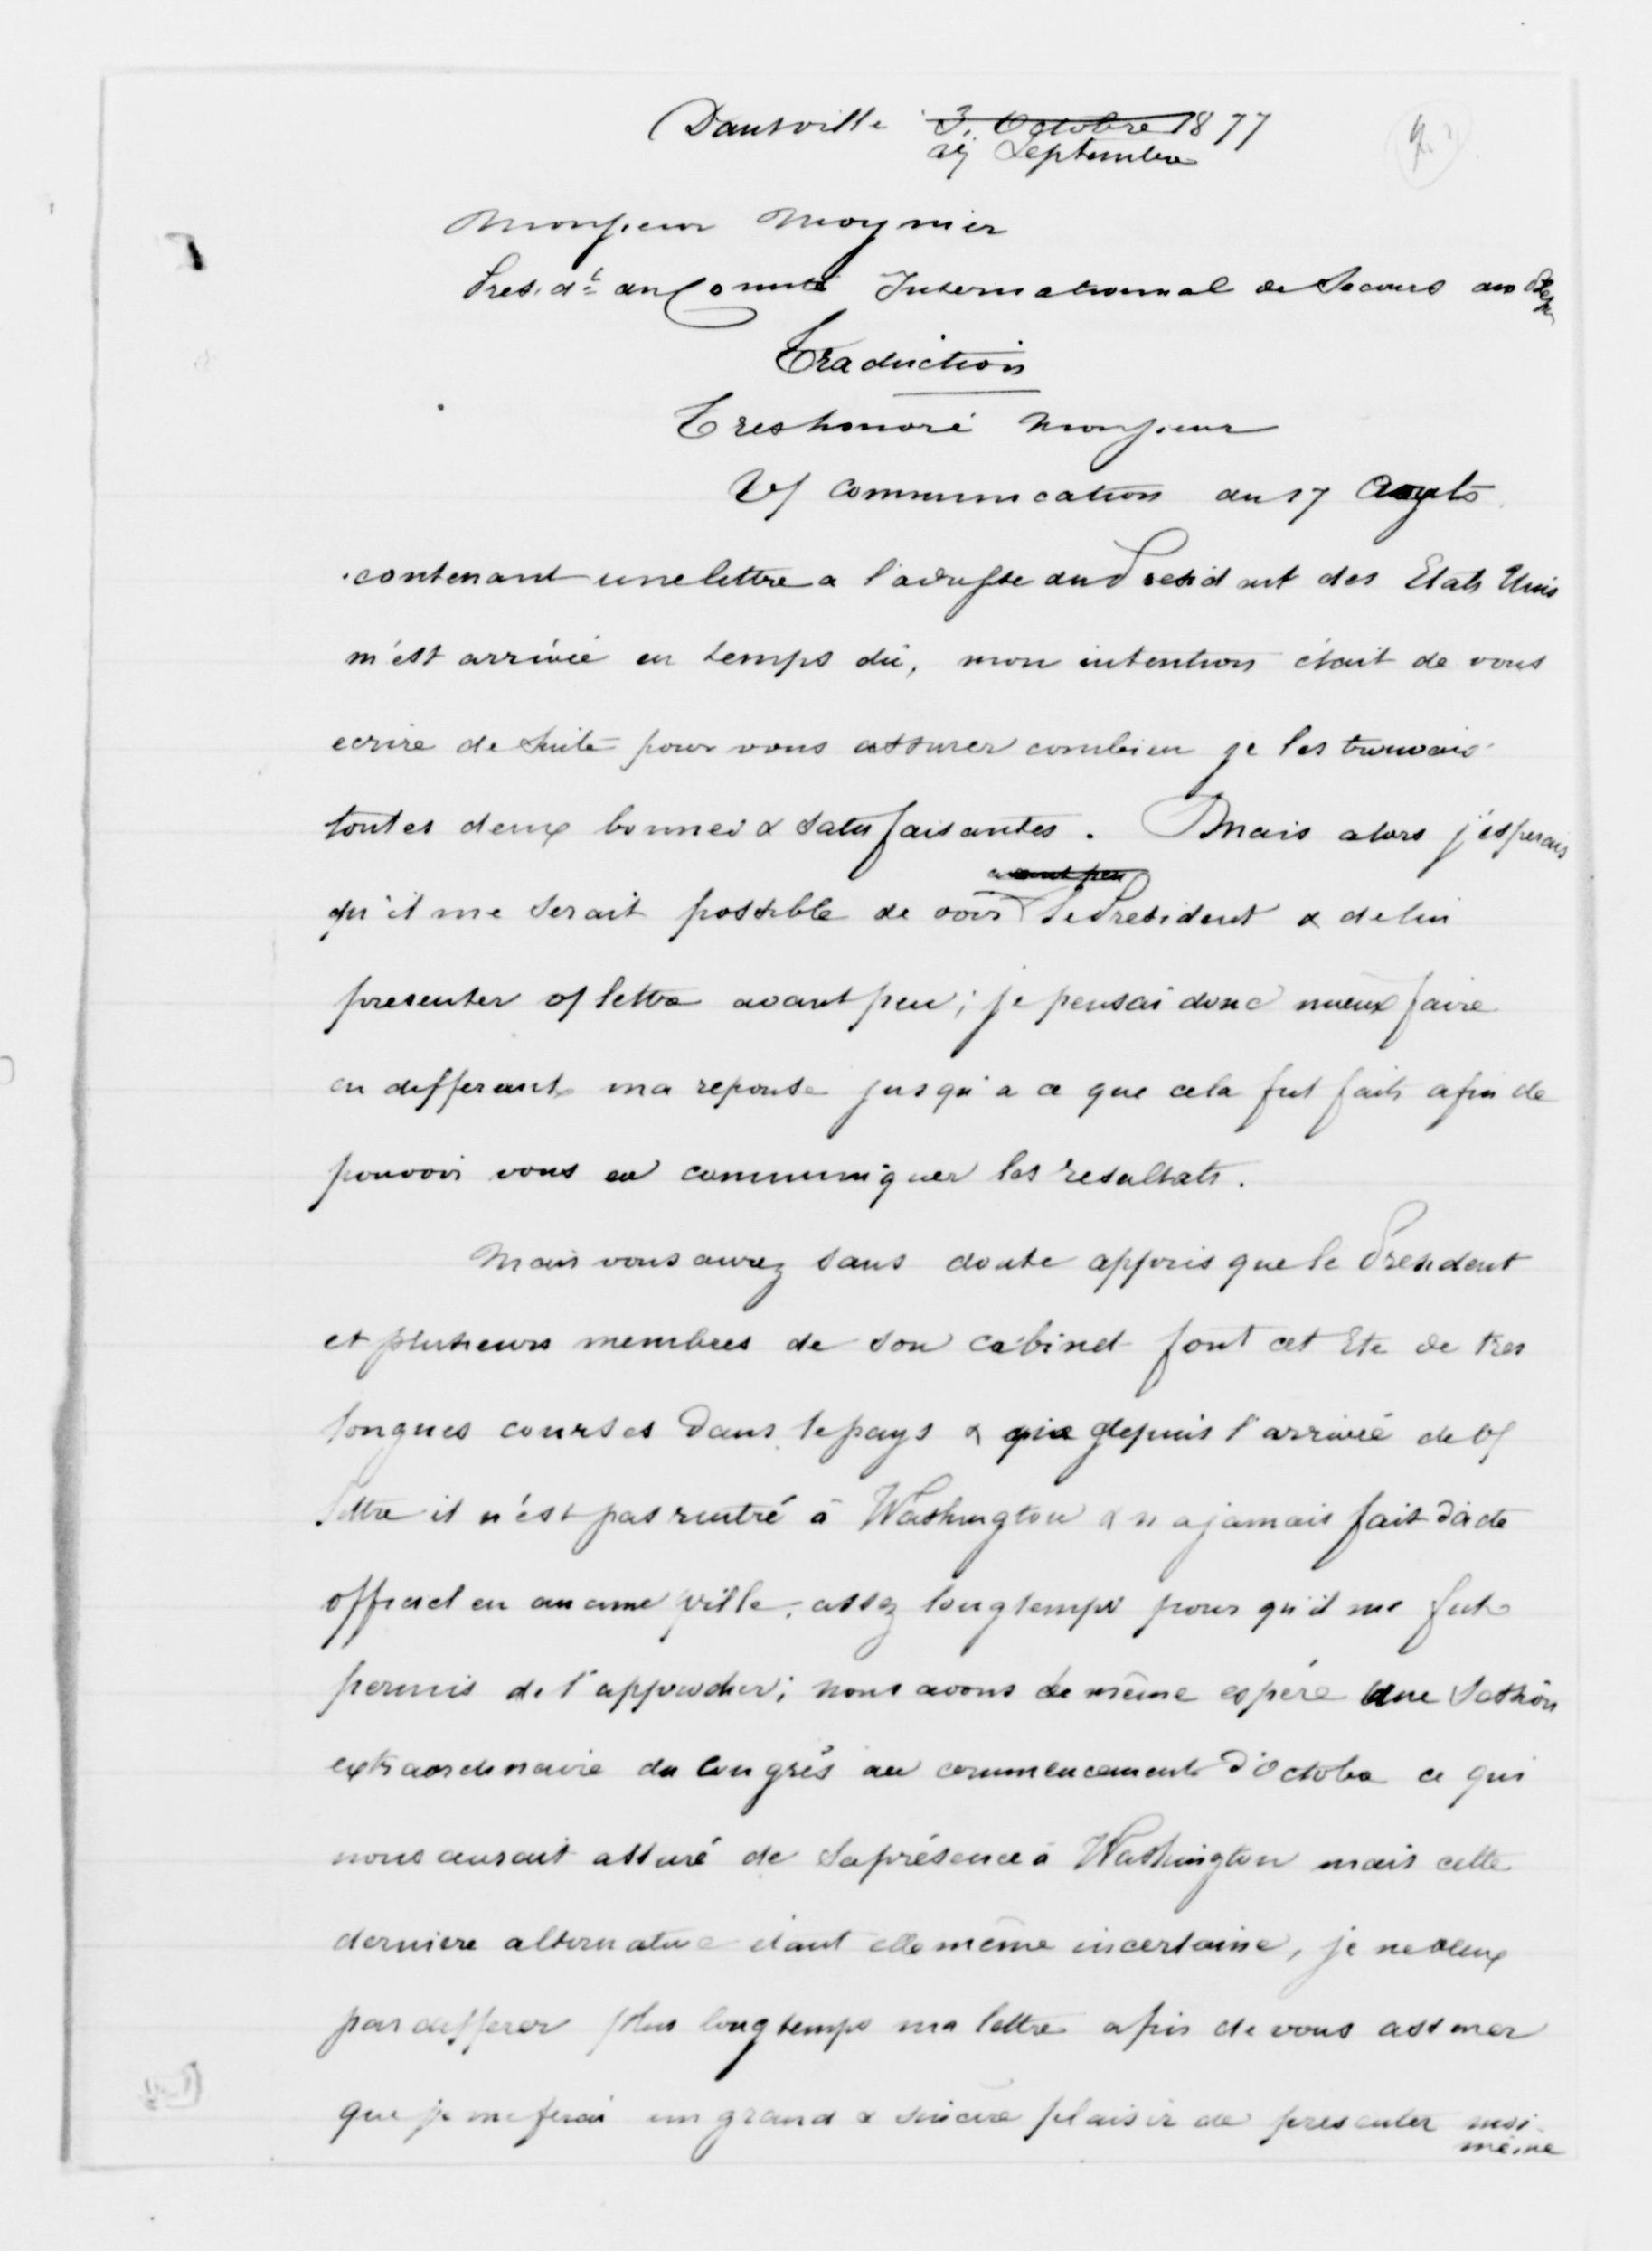 Dansville 3. Octobre 1877
Septembre
Monsieur Moynier
Presidt du Comité International de Secours aux
Traduction
Tres honoré Monsieur
Vf communication du 17 Augts
contenant une lettre a l'adresse du President des Etats Unis
m'est arrivée en temps dû, mon intention était de vous
ecrire de suite pour vous assurer combien je les trouvais
toutes deux bonnes & satisfaisantes. Mais alors j'esperais
avant peu
qu'il me serait possible de voir le President & de lui
presenter vf lettre avant peu; je pensai donc mieux faire
en differant ma reponse jusqu'a ce que cela fut fait afin de
pouvoir vous en communiquer les resultats.
Mais vous aurez sans doute appris que le President
et plusieurs membres de son cabinet font cet Ete de tres
longues courses dans le pays & que depuis l'arrivée de Vf
lettre il n'est pas rentré à Washington & n a jamais fait d'acte
officiel en aucune ville, assez longtemps pour qu'il me fut
permis de l'approcher; nous avons de même espéré une Session
extraordinaire du Congrès au commencement d'Octobre ce qui
nous aurait assuré de sa présence à Washington mais cette
derniere alternative étant elle même incertaine, je ne veux
pas differer plus longtemps ma lettre afin de vous assurer
que je me ferai un grand & sincère plaisir de presenter moi
même